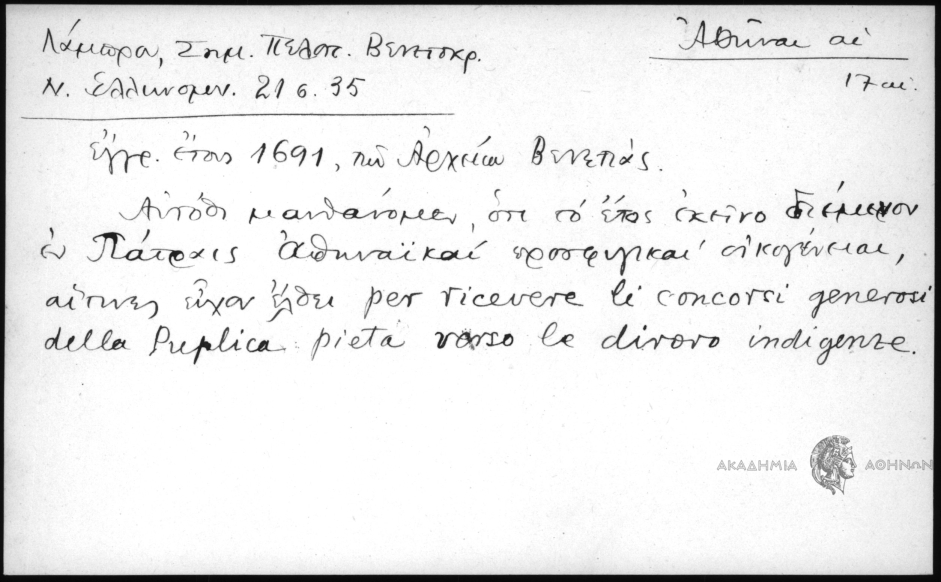 Λάμπρου, Σημ. Πελοπ. Βενετοκρ.
Ν. Ἑλληνομν. 21 σ. 35
Ἀθῆναι αἱ
17 αἰ.
ἔγγρ. ἔτους 1691, τοῦ Ἀρχείου Βενετίας.
Αὐτόθι μανθάνομεν, ὅτι τό ἔτος ἐκεῖνο διέμενον
ἐν Πάτραις ἀθηναϊκαί προσφυγικαί οἰκογένειαι,
αἵτινες εἶχον ἔλθει per ricevere li concorsi generosi
della Puplica pietà verso le divoro indigenze.
ΑΚΑΔΗΜΙΑ ΑΘΗΝΩΝ